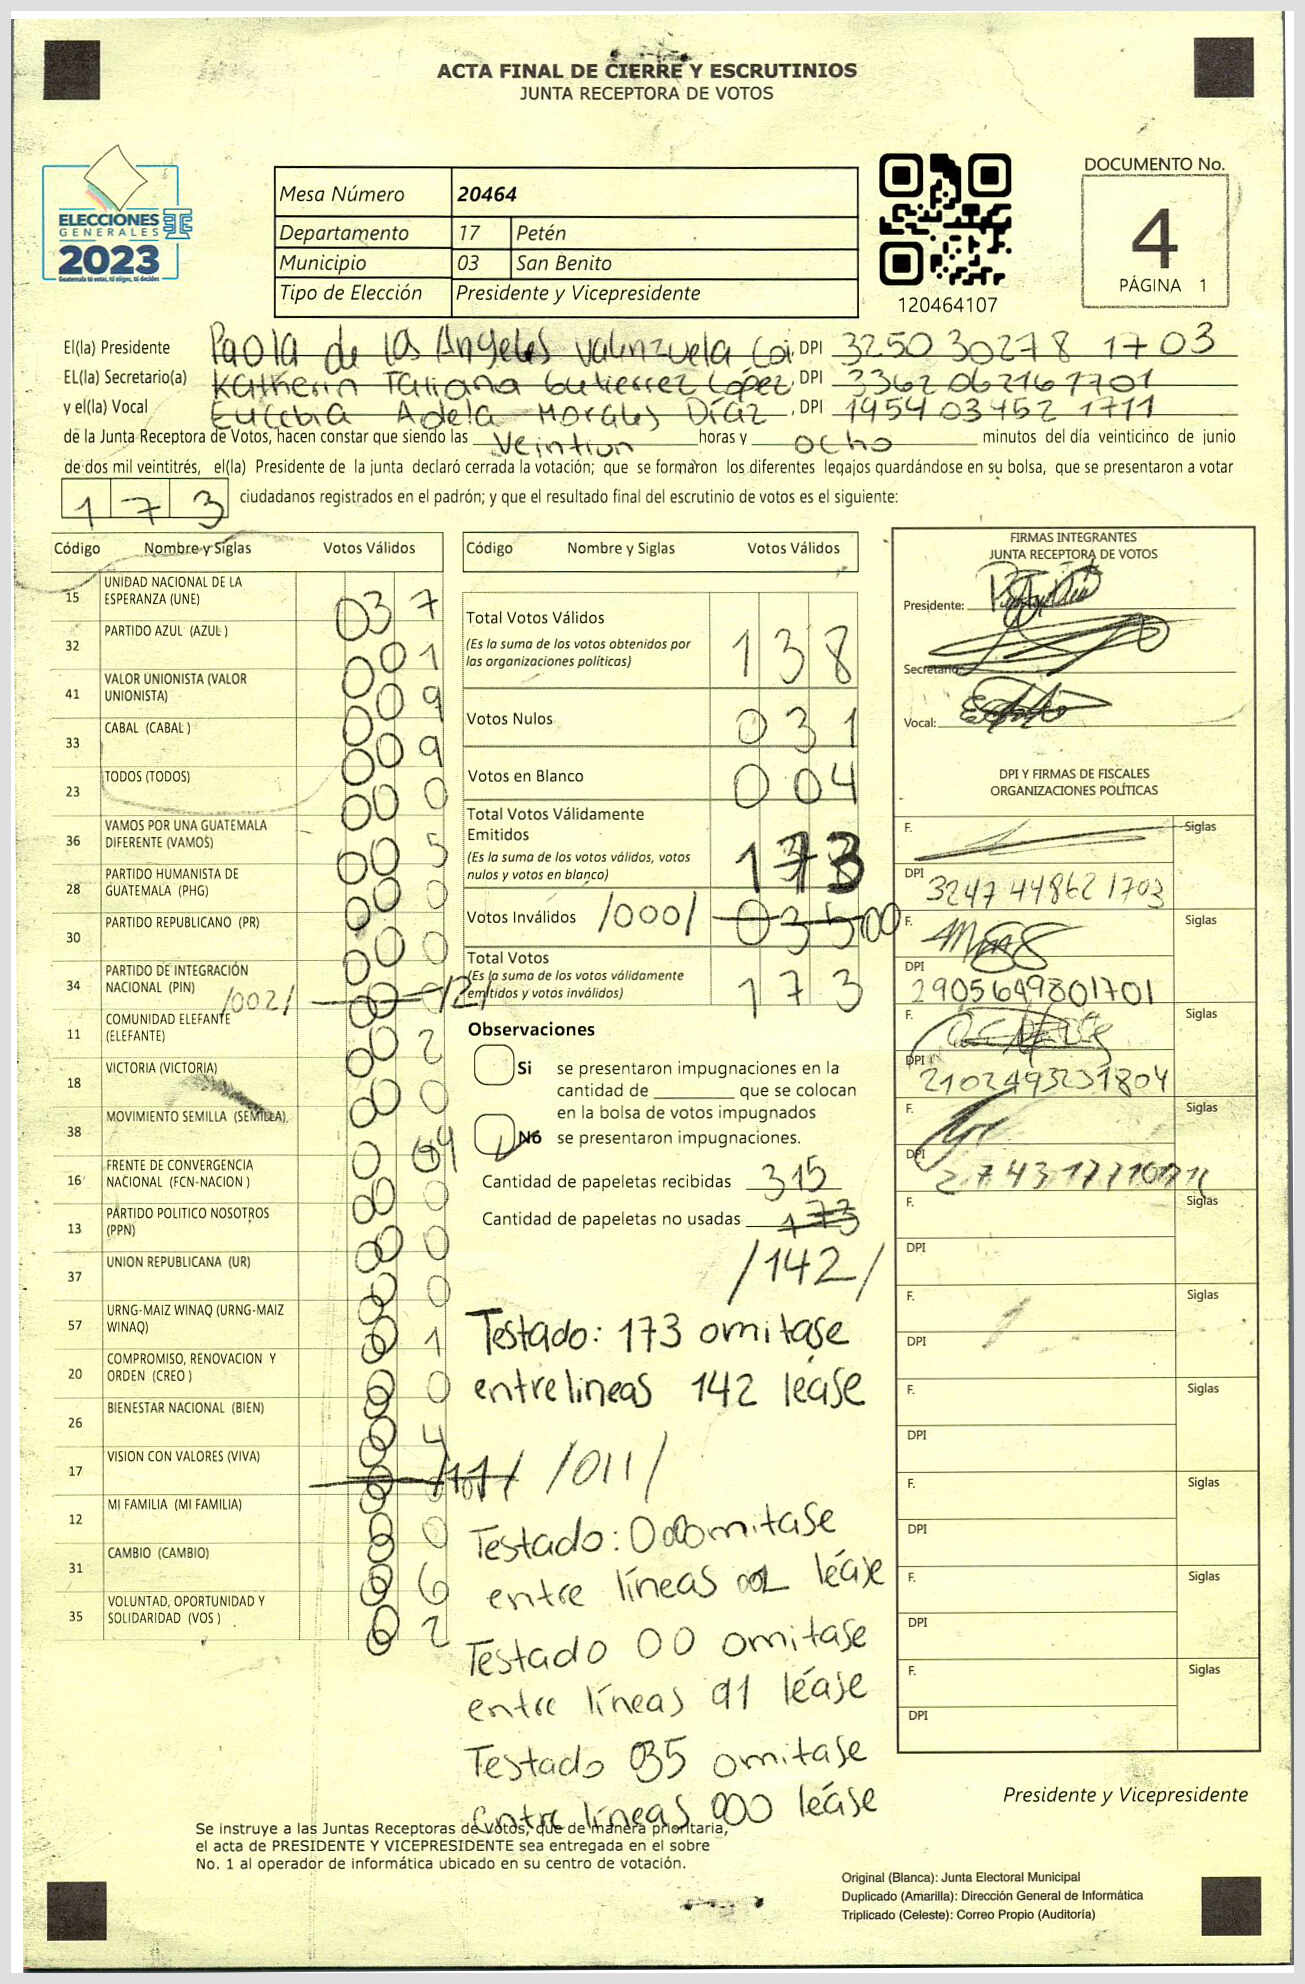 ACTA FINAL DE CIERRE Y ESCRUTINIOS
JUNTA RECEPTORA DE VOTOS
ELECCIONES
GENERALES
2023
Guatemala tú votas, tú eliges, tú decides
Mesa Número 20464
Departamento 17 Petén
Municipio 03 San Benito
Tipo de Elección Presidente y Vicepresidente
120464107
DOCUMENTO No.
4
PÁGINA 1
El(la) Presidente Paola de Los Angeles Valenzuela DPI 3250 30278 1703
EL(la) Secretario(a) Katherin Tatiana Gutierrez López, DPI 3362 06216 1701
y el(la) Vocal Adela Morales Díaz, DPI 1954 03452 1711
de la Junta Receptora de Votos, hacen constar que siendo las Veintiun horas y ocho minutos del día veinticinco de junio
de dos mil veintitrés, el(la) Presidente de la junta declaró cerrada la votación; que se formaron los diferentes legajos guardándose en su bolsa, que se presentaron a votar
173 ciudadanos registrados en el padrón; y que el resultado final del escrutinio de votos es el siguiente:
Código Nombre y Siglas Votos Válidos
15 UNIDAD NACIONAL DE LA ESPERANZA (UNE) 037
32 PARTIDO AZUL (AZUL ) 001
41 VALOR UNIONISTA (VALOR UNIONISTA) 009
33 CABAL (CABAL ) 009
23 TODOS (TODOS) 000
36 VAMOS POR UNA GUATEMALA DIFERENTE (VAMOS) 005
28 PARTIDO HUMANISTA DE GUATEMALA (PHG) 000
30 PARTIDO REPUBLICANO (PR) 000
34 PARTIDO DE INTEGRACIÓN NACIONAL (PIN) /002/ /2/
11 COMUNIDAD ELEFANTE (ELEFANTE) 002
18 VICTORIA (VICTORIA) 000
38 MOVIMIENTO SEMILLA (SEMILLA)
16 FRENTE DE CONVERGENCIA NACIONAL (FCN-NACION ) 000
13 PARTIDO POLITICO NOSOTROS (PPN) 000
37 UNION REPUBLICANA (UR) 000
57 URNG-MAIZ WINAQ (URNG-MAIZ WINAQ) 001
20 COMPROMISO, RENOVACION Y ORDEN (CREO ) 000
26 BIENESTAR NACIONAL (BIEN) 004
17 VISION CON VALORES (VIVA) /011/
12 MI FAMILIA (MI FAMILIA) 000
31 CAMBIO (CAMBIO) 006
35 VOLUNTAD, OPORTUNIDAD Y SOLIDARIDAD (VOS ) 002
Código Nombre y Siglas Votos Válidos
Total Votos Válidos 138
(Es la suma de los votos obtenidos por
las organizaciones políticas)
Votos Nulos 031
Votos en Blanco 004
Total Votos Válidamente
Emitidos 173
(Es la suma de los votos válidos, votos
nulos y votos en blanco)
Votos Inválidos /000/ 035
Total Votos 173
(Es la suma de los votos válidamente
emitidos y votos inválidos)
Observaciones
Si se presentaron impugnaciones en la
cantidad de ________ que se colocan
en la bolsa de votos impugnados
No se presentaron impugnaciones.
Cantidad de papeletas recibidas 315
Cantidad de papeletas no usadas 173
/142/
Testado: 173 omitase
entrelineas 142 léase
Testado: omitase
entre líneas 002 léase
Testado 00 omitase
entre líneas 01 léase
Testado 035 omitase
entre líneas 000 léase
FIRMAS INTEGRANTES
JUNTA RECEPTORA DE VOTOS
Presidente:
Secretario:
Vocal:
DPI Y FIRMAS DE FISCALES
ORGANIZACIONES POLÍTICAS
F. Siglas
DPI 3247 44862 1703
F. Siglas
DPI 2905649801701
F. Siglas
DPI 2102493231804
F. Siglas
DPI
F. Siglas
DPI
F. Siglas
DPI
F. Siglas
DPI
F. Siglas
DPI
F. Siglas
DPI
F. Siglas
DPI
Presidente y Vicepresidente
Se instruye a las Juntas Receptoras de Votos, que de manera prioritaria,
el acta de PRESIDENTE Y VICEPRESIDENTE sea entregada en el sobre
No. 1 al operador de informática ubicado en su centro de votación.
Original (Blanca): Junta Electoral Municipal
Duplicado (Amarilla): Dirección General de Informática
Triplicado (Celeste): Correo Propio (Auditoría)